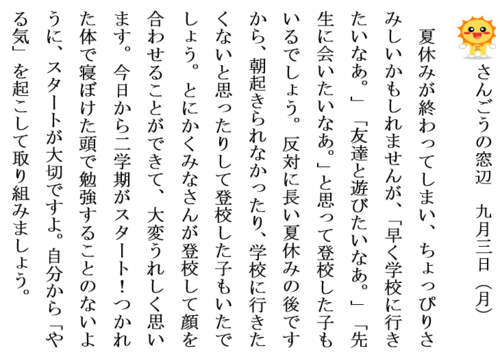 さんごうの窓辺　九月三日（月）
　夏休みが終わってしまい、ちょっぴりさ
みしいかもしれませんが、「早く学校に行き
たいなあ。」「友達と遊びたいなあ。」「先
生に会いたいなあ。」と思って登校した子も
いるでしょう。反対に長い夏休みの後です
から、朝起きられなかったり、学校に行きた
くないと思ったりして登校した子もいたで
しょう。とにかくみなさんが登校して顔を
合わせることができて、大変うれしく思い
ます。今日から二学期がスタート！つかれ
た体で寝ぼけた頭で勉強することのないよ
うに、スタートが大切ですよ。自分から「や
る気」を起こして取り組みましょう。